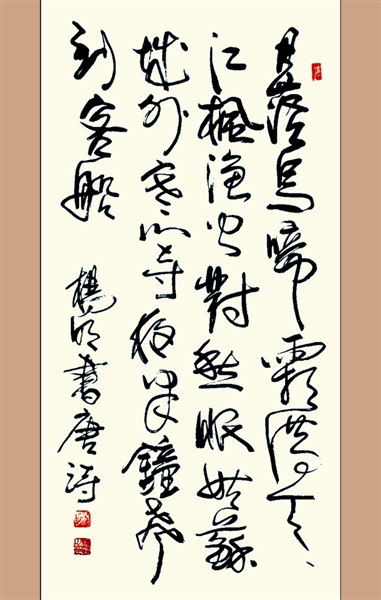 月落烏啼霜滿天
江楓漁火對愁眠姑蘇
城外寒山寺夜半鐘聲
到客船
楊明書唐詩